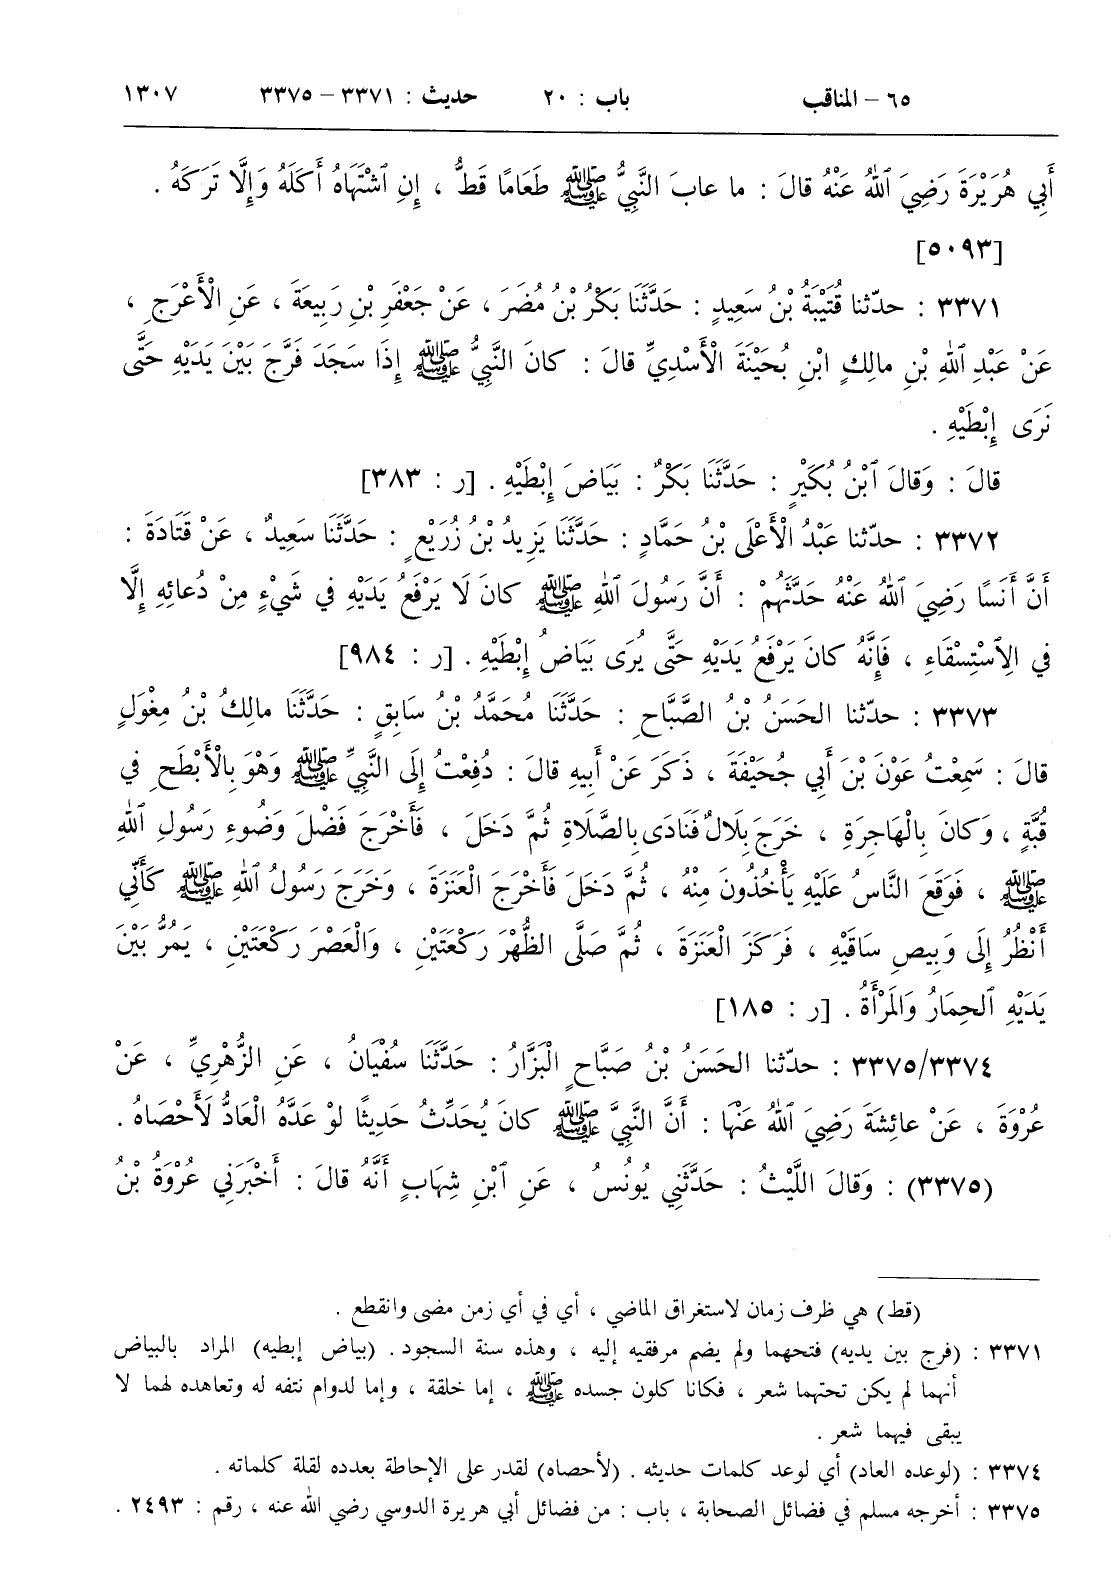 ٦٥ – المناقب باب : ٢٠ حديث : ٣٣٧١ – ٣٣٧٥ ١٣٠٧
أَبِي هُرَيْرَةَ رَضِيَ ٱللهُ عَنْهُ قالَ : ما عابَ النَّبِيُّ ﷺ طَعَامًا قَطُّ ، إِنِ ٱشْتَهَاهُ أَكَلَهُ وَإِلَّا تَرَكَهُ .
[٥٠٩٣]
٣٣٧١ : حدّثنا قُتَيْبَةُ بْنُ سَعِيدٍ : حَدَّثَنَا بَكْرُ بْنُ مُضَرَ ، عَنْ جَعْفَرِ بْنِ رَبِيعَةَ ، عَنِ الْأَعْرَجِ ،
عَنْ عَبْدِ ٱللهِ بْنِ مالِكٍ ابْنِ بُحَيْنَةَ الْأَسْدِيِّ قالَ : كانَ النَّبِيُّ ﷺ إِذَا سَجَدَ فَرَّجَ بَيْنَ يَدَيْهِ حَتَّى
نَرَى إِبْطَيْهِ .
قالَ : وَقالَ ٱبْنُ بُكَيْرٍ : حَدَّثَنَا بَكْرٌ : بَيَاضَ إِبْطَيْهِ . [ر : ٣٨٣]
٣٣٧٢ : حدّثنا عَبْدُ الْأَعْلَى بْنُ حَمَّادٍ : حَدَّثَنَا يَزِيدُ بْنُ زُرَيْعٍ : حَدَّثَنَا سَعِيدٌ ، عَنْ قَتَادَةَ :
أَنَّ أَنَسًا رَضِيَ ٱللهُ عَنْهُ حَدَّثَهُمْ : أَنَّ رَسُولَ ٱللهِ ﷺ كانَ لَا يَرْفَعُ يَدَيْهِ في شَيْءٍ مِنْ دُعائِهِ إِلَّا
في الِٱسْتِسْقَاءِ ، فَإِنَّهُ كانَ يَرْفَعُ يَدَيْهِ حَتَّى يُرَى بَيَاضُ إِبْطَيْهِ . [ر : ٩٨٤]
٣٣٧٣ : حدّثنا الحَسَنُ بْنُ الصَّبَّاحِ : حَدَّثَنَا مُحَمَّدُ بْنُ سَابِقٍ : حَدَّثَنَا مالِكُ بْنُ مِغْوَلٍ
قالَ : سَمِعْتُ عَوْنَ بْنَ أَبِي جُحَيْفَةَ ، ذَكَرَ عَنْ أَبِيهِ قالَ : دُفِعْتُ إِلَى النَّبِيِّ ﷺ وَهْوَ بِالْأَبْطَحِ في
قُبَّةٍ ، وَكانَ بِالْهَاجِرَةِ ، خَرَجَ بِلَالٌ فَنَادَى بِالصَّلَاةِ ثُمَّ دَخَلَ ، فَأَخْرَجَ فَضْلَ وَضُوءِ رَسُولِ ٱللهِ
ﷺ ، فَوَقَعَ النَّاسُ عَلَيْهِ يَأْخُذُونَ مِنْهُ ، ثُمَّ دَخَلَ فَأَخْرَجَ الْعَنَزَةَ ، وَخَرَجَ رَسُولُ ٱللهِ ﷺ كَأَنِّي
أَنْظُرُ إِلَى وَبِيصِ سَاقَيْهِ ، فَرَكَزَ الْعَنَزَةَ ، ثُمَّ صَلَّى الظُّهْرَ رَكْعَتَيْنِ ، وَالْعَصْرَ رَكْعَتَيْنِ ، يَمُرُّ بَيْنَ
يَدَيْهِ الحِمَارُ وَالمَرْأَةُ . [ر : ١٨٥]
٣٣٧٥/٣٣٧٤ : حدّثنا الحَسَنُ بْنُ صَبَّاحٍ الْبَزَّارُ : حَدَّثَنَا سُفْيَانُ ، عَنِ الزُّهْرِيِّ ، عَنْ
عُرْوَةَ ، عَنْ عائِشَةَ رَضِيَ ٱللهُ عَنْهَا : أَنَّ النَّبِيَّ ﷺ كانَ يُحَدِّثُ حَدِيثًا لَوْ عَدَّهُ الْعَادُّ لَأَحْصَاهُ .
(٣٣٧٥) : وَقالَ اللَّيْثُ : حَدَّثَنِي يُونُسُ ، عَنِ ٱبْنِ شِهَابٍ أَنَّهُ قالَ : أَخْبَرَنِي عُرْوَةُ بْنُ
(قط) هي ظرف زمان لاستغراق الماضي ، أي في أي زمن مضى وانقطع .
٣٣٧١ : (فرج بين يديه) فتحهما ولم يضم مرفقيه إليه ، وهذه سنة السجود . (بياض إبطيه) المراد بالبياض
أنهما لم يكن تحتهما شعر ، فكانا كلون جسده ﷺ ، إما خلقة ، وإما لدوام نتفه له وتعاهده لهما لا
يبقى فيهما شعر .
٣٣٧٤ : (لوعده العاد) أي لوعد كلمات حديثه . (لأحصاه) لقدر على الإحاطة بعدده لقلة كلماته .
٣٣٧٥ : أخرجه مسلم في فضائل الصحابة ، باب : من فضائل أبي هريرة الدوسي رضي الله عنه ، رقم : ٢٤٩٣ .